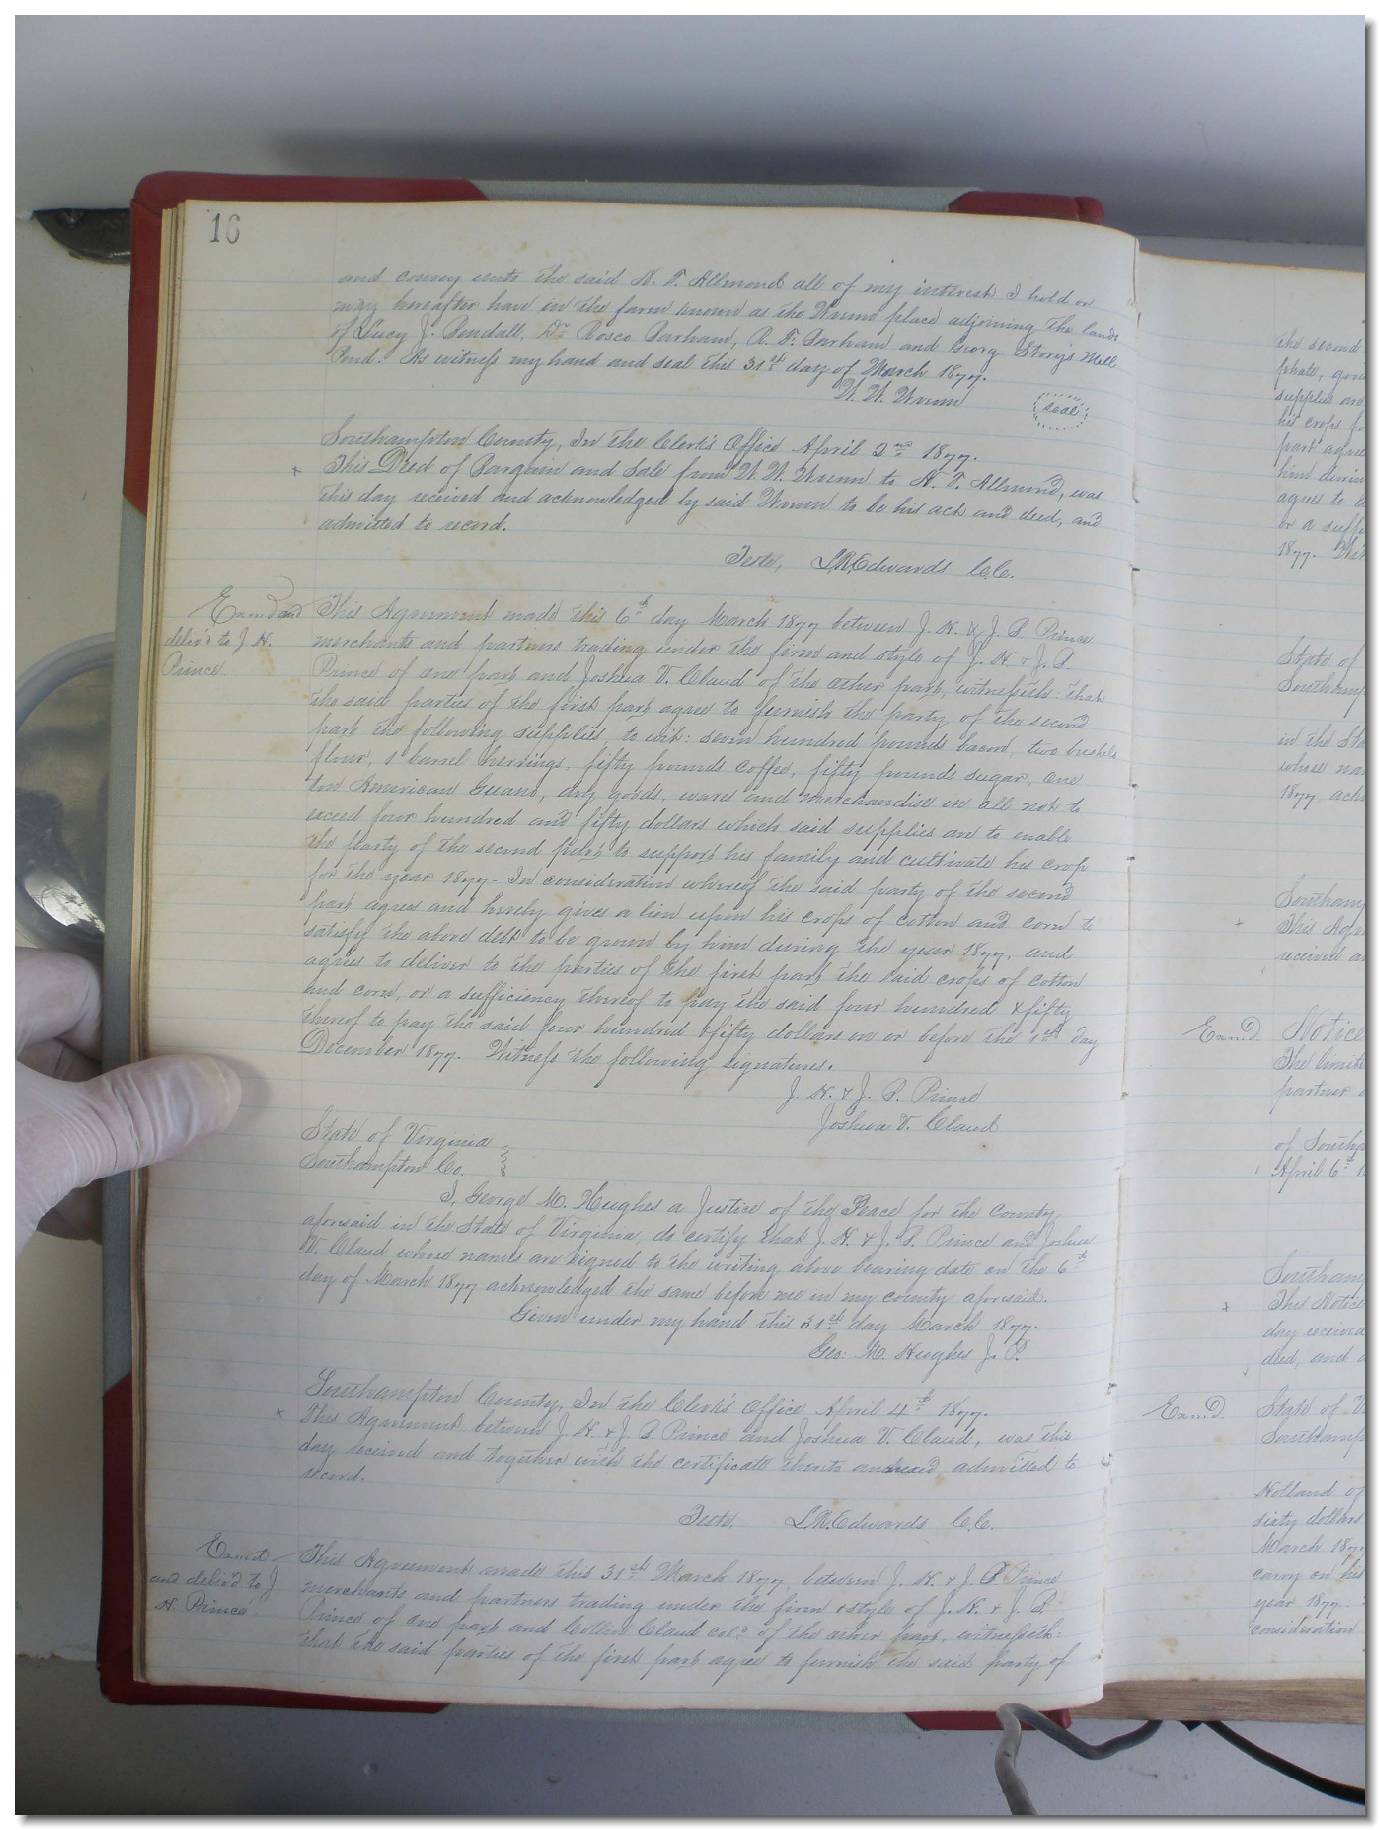 16
and convey unto the said N. T. Allmond all of my interest I hold or
may hereafter have in the farm known as the Wrenn place adjoining the lands
of Lucy J. Rendall, Dr. Rosco Parham, R. F. Parham and Georg Story's Mill
Pond. As witness my hand and seal this 31st day of March 1877.
W. W. Wrenn
seal
Southampton County, In the Clerk's Office April 2nd 1877.
This Deed of Bargain and Sale from W. W. Wrenn to N. T. Allmond, was
this day received and acknowledged by said Wrenn to be his act and deed, and
admitted to record.
Teste, L.R. Edwards C.C.
Examd and
deliv'd to J. N.
Prince.
This Agreement made this 6th day March 1877 between J. N. & J. B. Prince
merchants and partners trading under the firm and style of J. N. & J. B.
Prince of one part and Joshua V. Claud of the other part, witnesseth: that
the said parties of the first part agree to furnish the party of the second
part the following supplies, to wit: seven hundred pounds bacon, two bushels
flour, 1 barrel herrings, fifty pounds coffee, fifty pounds sugar, one
ton American Guano, dry goods, wares and merchandise in all not to
exceed four hundred and fifty dollars which said supplies are to enable
the party of the second part to support his family and cultivate his crop
for the year 1877- In consideration whereof the said party of the second
part agrees and hereby gives a lien upon his crops of cotton and corn to
satisfy the above debt to be grown by him during the year 1877, and
agrees to deliver to the parties of the first part the said crops of cotton
and corn, or a sufficiency thereof to pay the said four hundred & fifty
thereof to pay the said four hundred & fifty dollars on or before the 1st day
December 1877. Witness the following signatures.
J. N. & J. B. Prince
Joshua V. Claud
State of Virginia
Southampton Co.
I, George M. Hughes a Justice of the Peace for the County
aforesaid in the State of Virginia, do certify that J. N. & J. B. Prince and Joshua
V. Claud whose names are signed to the writing above bearing date on the 6th
day of March 1877 acknowledged the same before me in my county aforesaid.
Given under my hand this 31st day March 1877.
Geo: M. Hughes J. P.
Southampton County, In the Clerk's Office April 4th 1877.
This Agreement between J. N. & J. B. Prince and Joshua V. Claud, was this
day received and together with the certificate thereto annexed admitted to
record.
Teste. L.R. Edwards C.C.
Examd
and deliv'd to J
N. Prince
This Agreement made this 31st March 1877, between J. N. & J. B Prince
merchants and partners trading under the firm & style of J. N. & J. B.
Prince of one part and Claud cold. of the other part, witnesseth:
that the said parties of the first part agree to furnish the said party of
the second
phate, goo
supplies are
his crops f
part agree
him durin
agrees to d
or a suff
1877. Wit
State of
Southamp
in the Sta
whose na
1877, ack
Southamp
This Agre
received a
Exam'd. Notice
The limite
partner
of South
April 6th 1
Southamp
This Notice
day received
deed, and a
Exam'd. State of V
Southamp
Holland of
sixty dollars
March 1877
carry on his
year 1877.
consideration